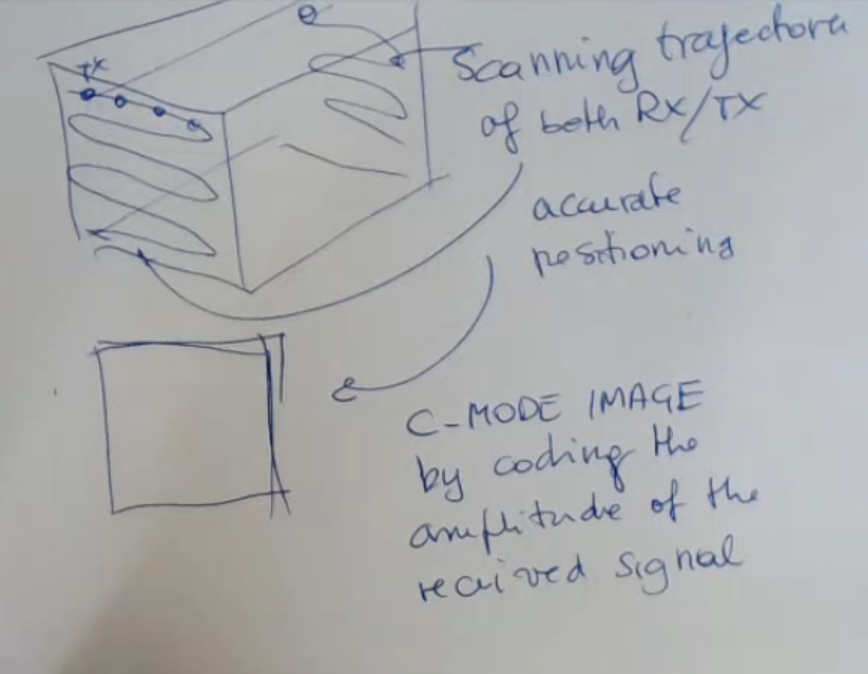 TX
Scanning trajectora
of both RX/TX
accurate
positioning
C-MODE IMAGE
by coding the
amplitude of the
received signal